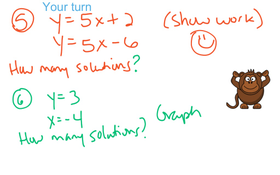 Your turn
5 y = 5x + 2 (show work)
y = 5x - 6
How many solutions?
6 y = 3
x = -4 Graph
How many solutions?